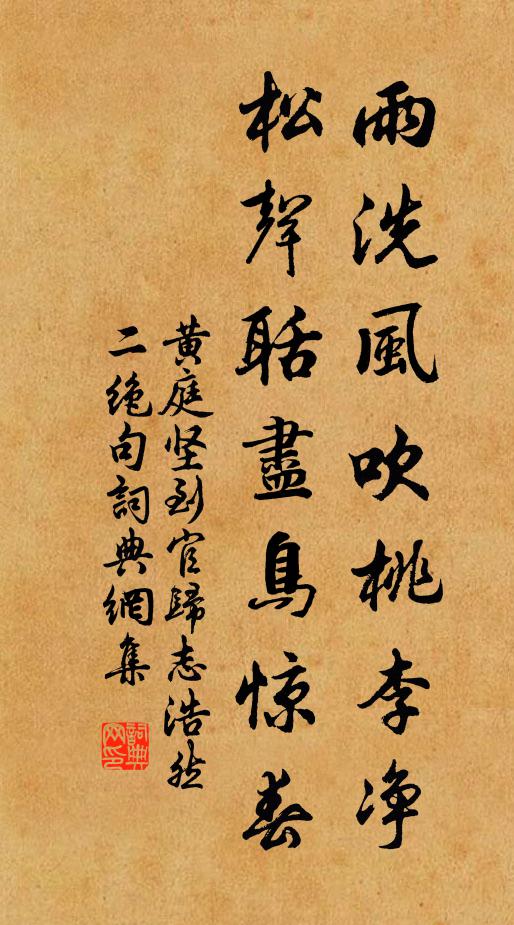 雨洗風吹桃李净
松聲聒盡鳥惊春
黄庭坚到官歸志浩然
二绝句詞典網集
詞典網印